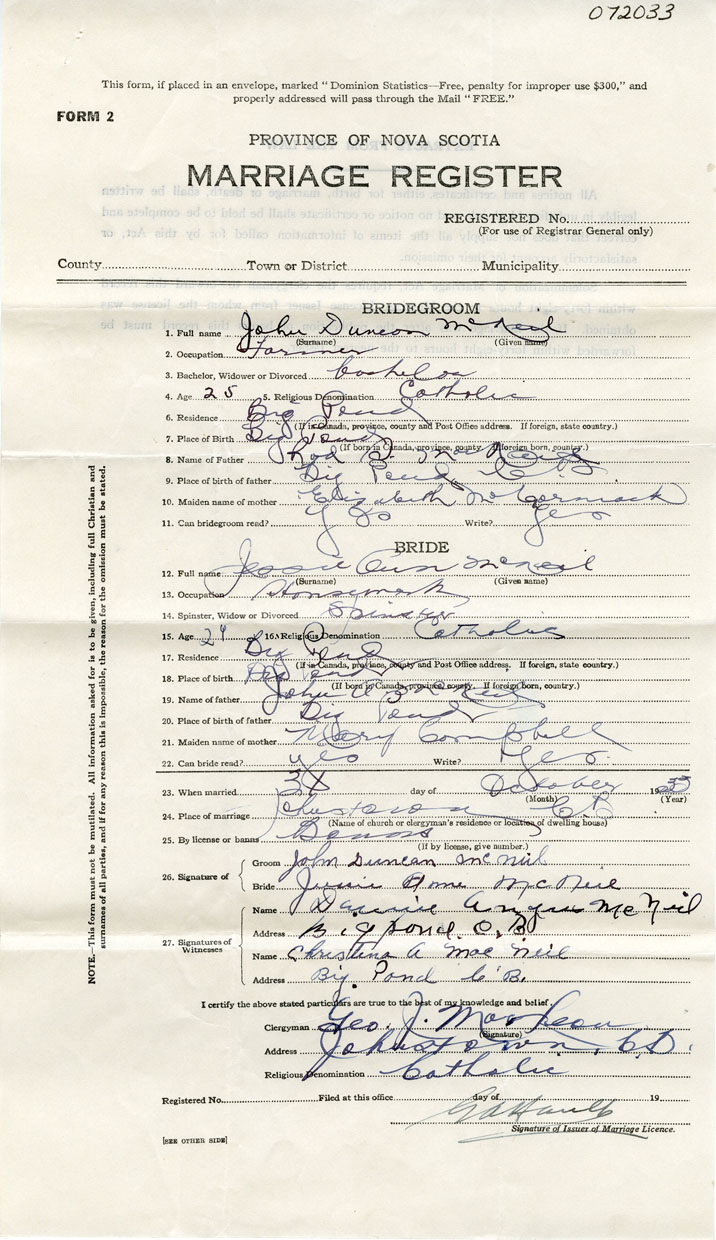 072033
This form, if placed in an envelope, marked " Dominion Statistics—Free, penalty for improper use $300," and
properly addressed will pass through the Mail " FREE."
FORM 2
PROVINCE OF NOVA SCOTIA
MARRIAGE REGISTER
REGISTERED No.
(For use of Registrar General only)
County Town or District Municipality
BRIDEGROOM
1. Full name John Duncan McNeil
(Surname) (Given name)
2. Occupation Farmer
3. Bachelor, Widower or Divorced bachelor
4. Age 25 5. Religious Denomination Catholic
6. Residence Big Pond
(If in Canada, province, county and Post Office address. If foreign, state country.)
7. Place of Birth Big Pond
(If born in Canada, province, county. If foreign born, country.)
8. Name of Father Rod
9. Place of birth of father Big Pond C B
10. Maiden name of mother Elizabeth McCormack
11. Can bridegroom read? Yes Write? Yes
BRIDE
12. Full name Jessie Ann McNeil
(Surname) (Given name)
13. Occupation Housework
14. Spinster, Widow or Divorced Spinster
15. Age 24 16. Religious Denomination Catholic
17. Residence Big Pond
(If in Canada, province, county and Post Office address. If foreign, state country.)
18. Place of birth Big Pond
(If born in Canada, province, county. If foreign born, country.)
19. Name of father John
20. Place of birth of father Big Pond
21. Maiden name of mother Mary Campbell
22. Can bride read? yes Write? Yes
23. When married day of October 1935
(Month) (Year)
24. Place of marriage C B
(Name of church or clergyman's residence or location of dwelling house)
25. By license or banns Banns
(If by license, give number.)
26. Signature of
Groom John Duncan McNeil
Bride Jessie Anne McNeil
27. Signatures of Witnesses
Name Dannie Angus McNeil
Address Big Pond C.B.
Name Christina A MacNeil
Address Big Pond C.B.
I certify the above stated particulars are true to the best of my knowledge and belief.
Clergyman Geo. J.
(Signature)
Address Johnstown, C.B.
Religious Denomination Catholic
Registered No. Filed at this office day of 19
Signature of Issuer of Marriage Licence.
[SEE OTHER SIDE]
NOTE.—This form must not be mutilated. All information asked for is to be given, including full Christian and
surnames of all parties, and if for any reason this is impossible, the reason for the omission must be stated.